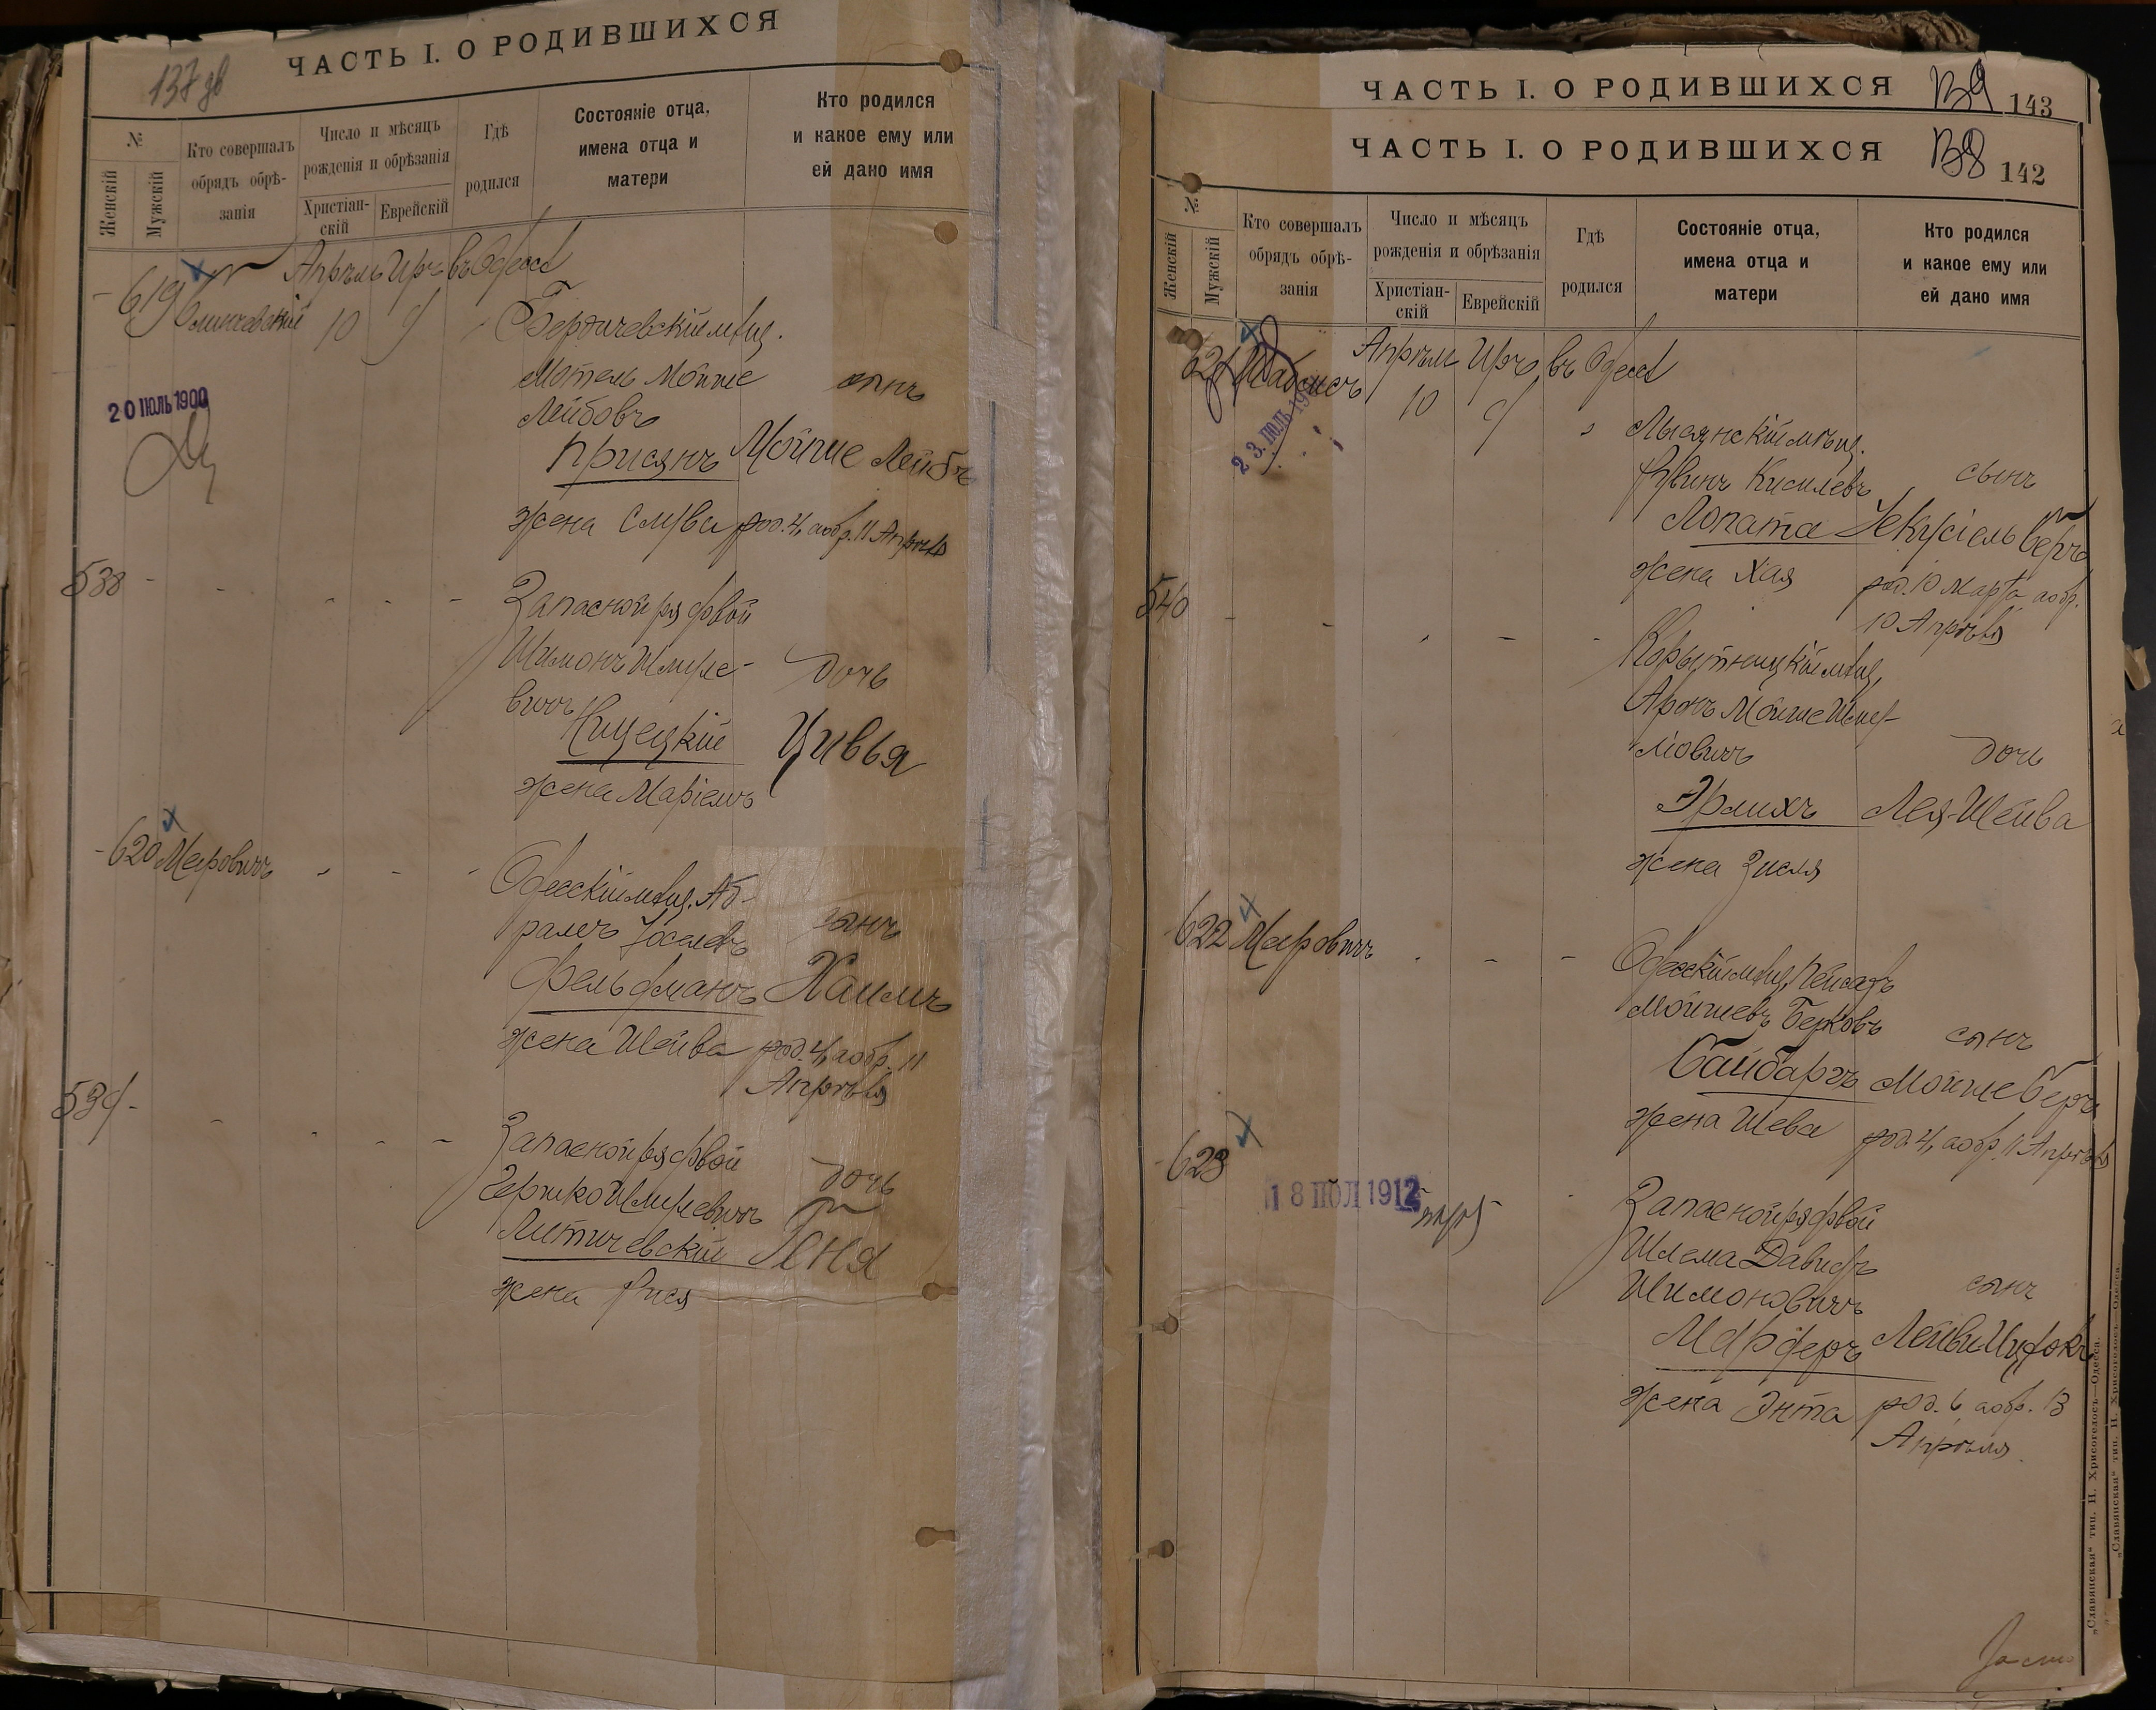 137 об
ЧАСТЬ I. О РОДИВШИХСЯ
№
Женскій
Мужскій
Кто совершалъ
обрядъ обрѣ-
занія
Число и мѣсяцъ
рожденія и обрѣзанія
Христіан-
скій
Еврейскій
Гдѣ
родился
Состояніе отца,
имена отца и
матери
Кто родился
и какое ему или
ей дано имя
619
Апрѣль Иръ въ Одессѣ
10 9
Бердичевскій мѣщ.
Мотель Мойше
Лейбовъ
сынъ
Присянъ Мойше Лейбъ
жена Слува род. 4, а обр. 11 Апрѣля
20 ІЮЛЬ 1900
538
Запасной рядовой
Шимонъ Шмуле-
вичъ
дочь
Цивья
жена Маріемъ
620 Меровичъ
Одесскій мѣщ. Аб-
рамъ Іоселевъ
сынъ
Фельдманъ Хаимъ
жена Шейва род. 4, а обр. 11
Апрѣля
539
Запасной рядовой
Гершко Шмулевичъ
дочь
Литичевскій Геня
жена Рися
ЧАСТЬ I. О РОДИВШИХСЯ
143
ЧАСТЬ I. О РОДИВШИХСЯ
138
142
№
Женскій
Мужскій
Кто совершалъ
обрядъ обрѣ-
занія
Число и мѣсяцъ
рожденія и обрѣзанія
Христіан-
скій
Еврейскій
Гдѣ
родился
Состояніе отца,
имена отца и
матери
Кто родился
и какое ему или
ей дано имя
621
Апрѣль Иръ въ Одессѣ
10 9
Лысянскій мѣщ.
Рувинъ Кисилевъ
сынъ
Лопата Іекусіель Беръ
жена Хая
род. 10 Марта а обр.
10 Апрѣля
540
Корытницкій мѣщ.
Аронъ Мойше
дочь
Эрлихъ Лея-Шейва
жена Зисля
622 Меровичъ
Одесскій мѣщ. Пейсахъ
Мойшевъ Берковъ
сынъ
Байбаръ Мойше Беръ
жена Шева
род. 4, а обр. 11 Апрѣля
623
18 ІЮЛ 1912
Запасной рядовой
Шлема Давидъ
Шимоновичъ
сынъ
Мардеръ Лейви Ицхокъ
жена Энта
род. 6, а обр. 13
Апрѣля
„Славянская“ тип. Н. Хрисогелосъ—Одесса.
„Славянская“ тип. Н. Хрисогелосъ—Одесса.